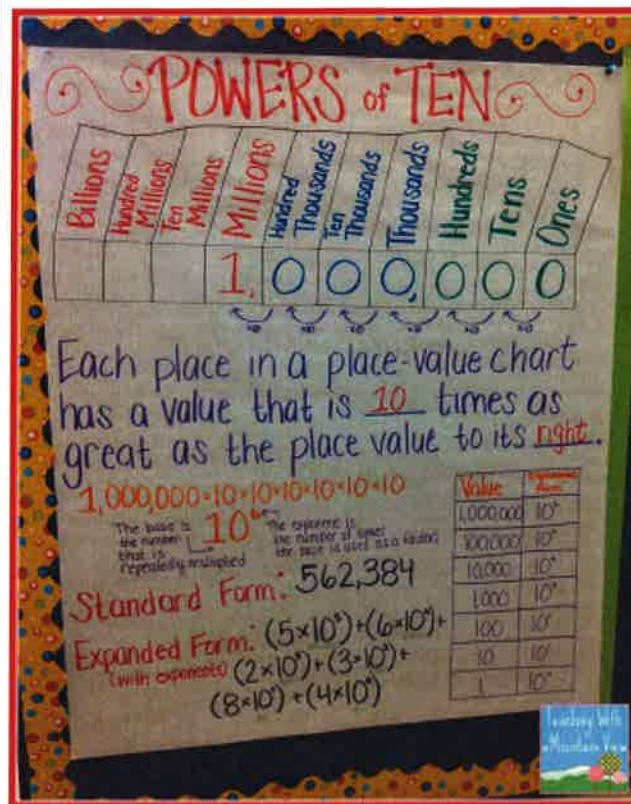 POWERS of TEN
Billions
Hundred Millions
Ten Millions
Millions
Hundred Thousands
Ten Thousands
Thousands
Hundreds
Tens
Ones
1, 0 0 0, 0 0 0
Each place in a place-value chart
has a value that is 10 times as
great as the place value to its right.
1,000,000=10×10×10×10×10×10
The base is
the number
that is
repeatedly multiplied
10
The exponent is
the number of times
the base is used as a factor
Standard Form: 562,384
Expanded Form: (5×10⁵)+(6×10⁴)+
(with exponents) (2×10³)+(3×10²)+
(8×10¹)+(4×10⁰)
Value
1,000,000 10⁶
100,000 10⁵
10,000 10⁴
1,000 10³
100 10²
10 10¹
1 10⁰
Teaching With
a Mountain View